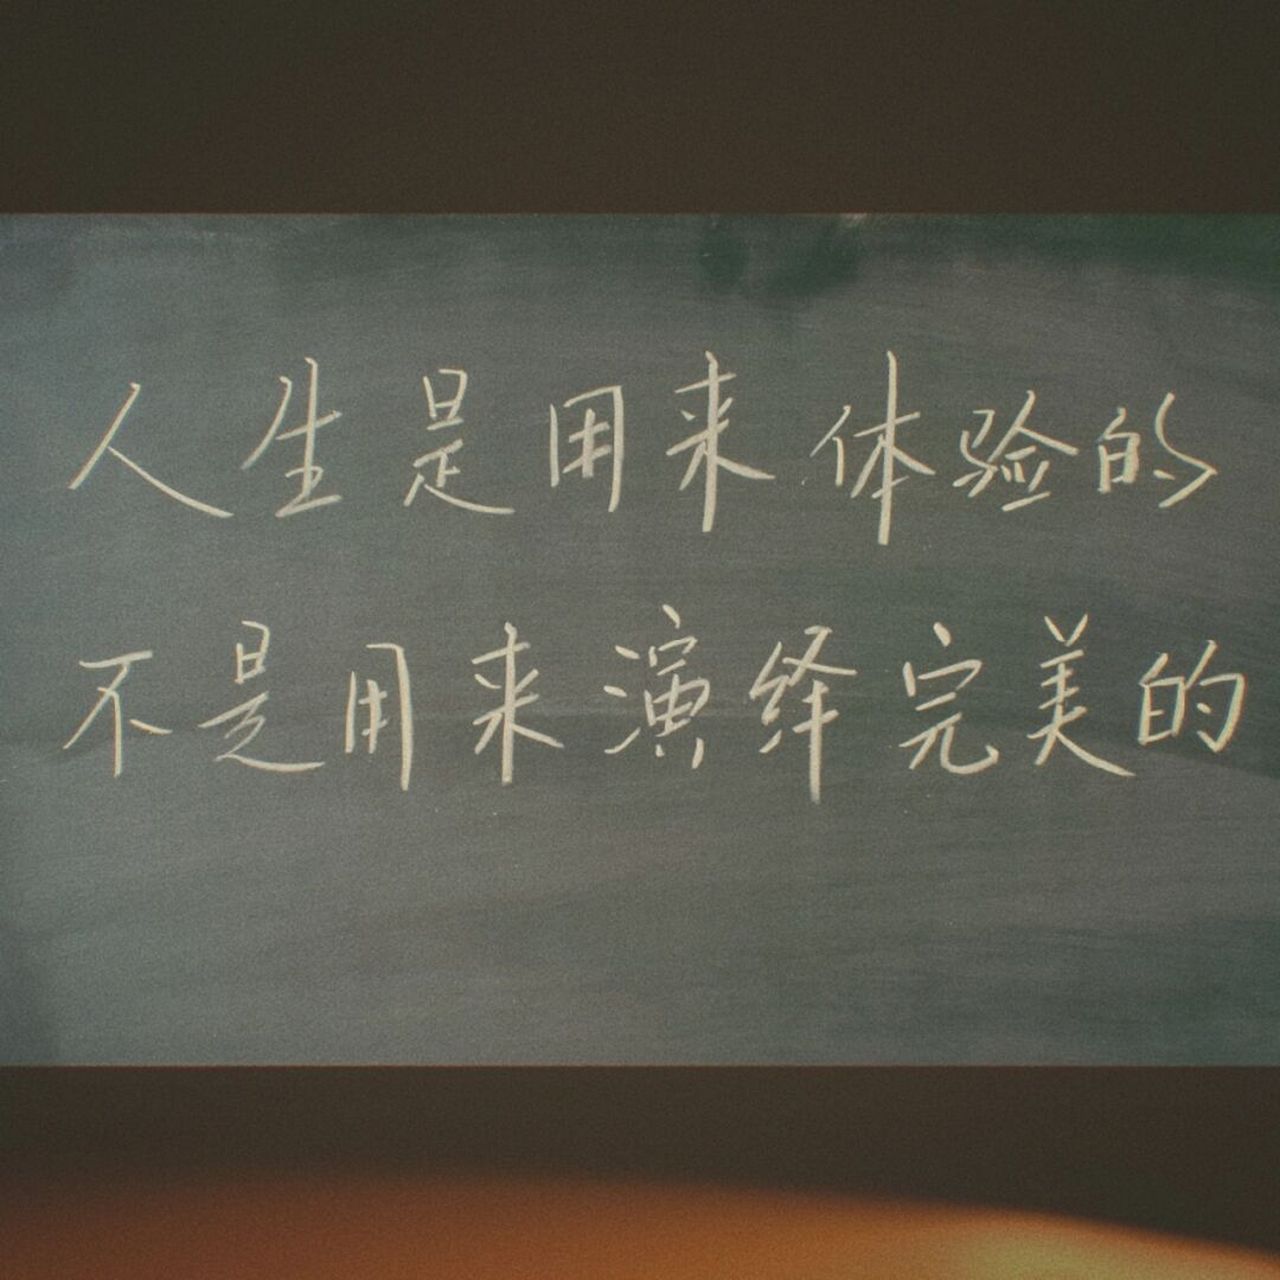 人生是用来体验的
不是用来演绎完美的